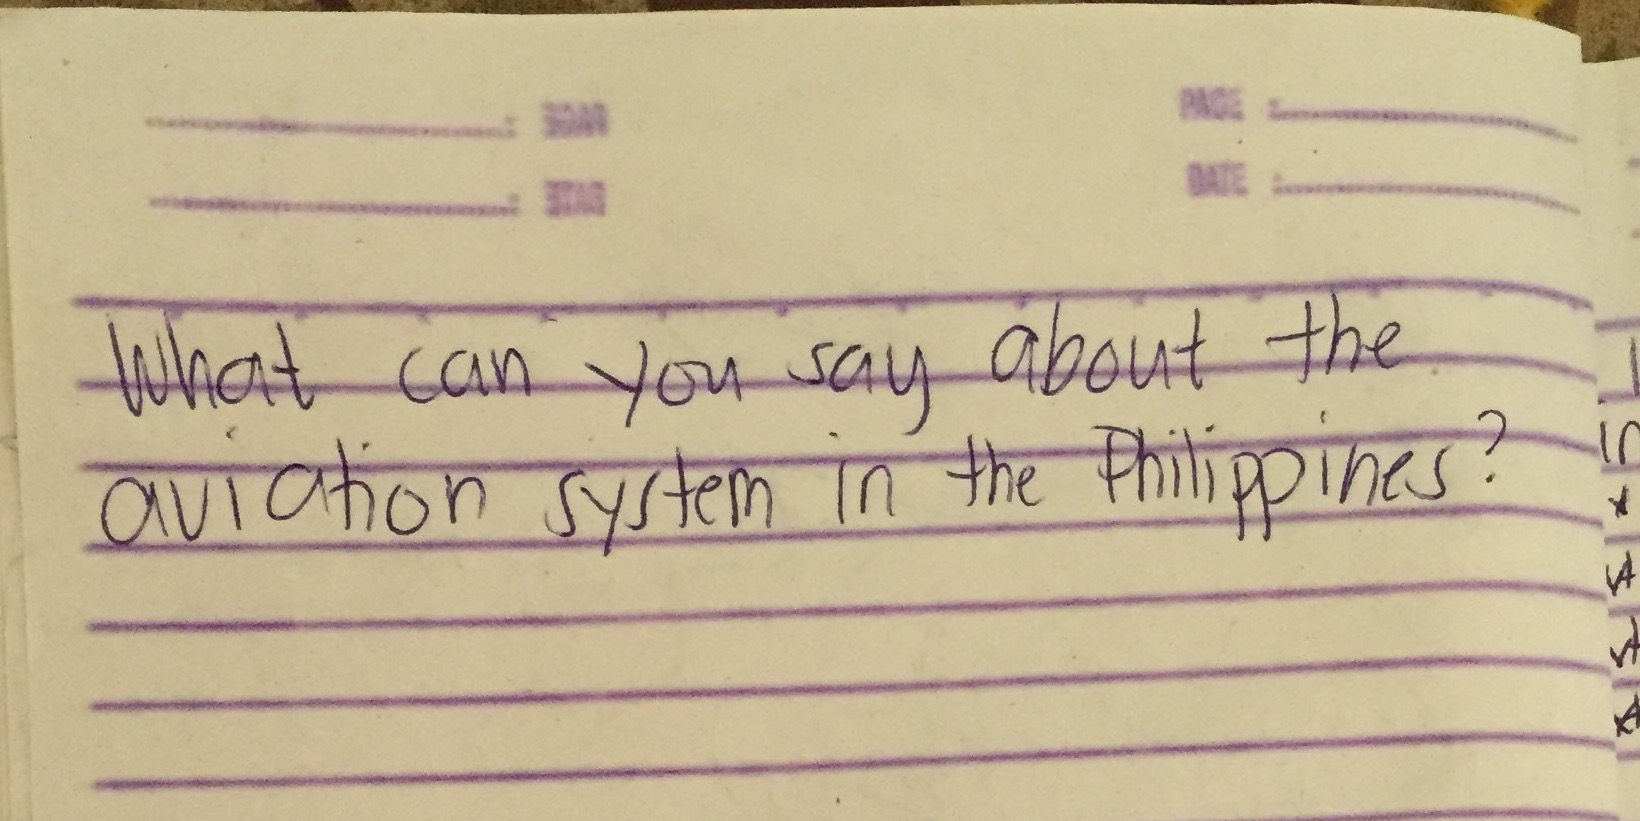 PAGE :
DATE :
What can you say about the
aviation system in the Philippines?